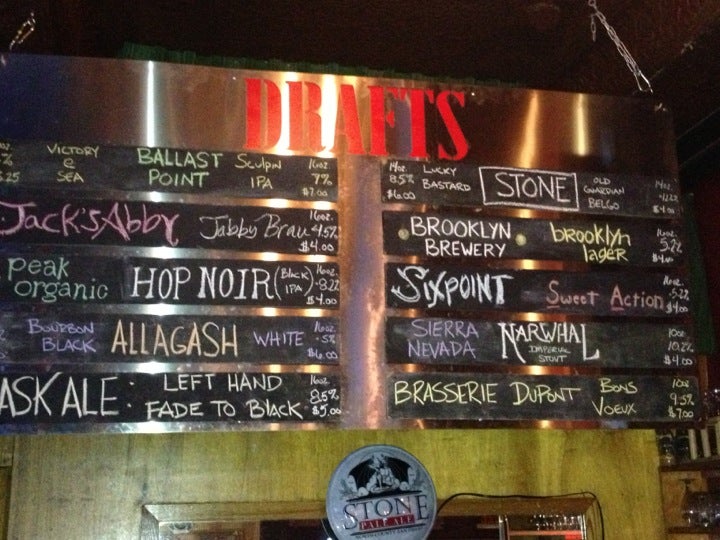 DRAFTS
VICTORY @ SEA
BALLAST POINT
Sculpin IPA
16oz. 7% $7.00
Jack's Abby Jabby Brau 16oz. 4.5% $4.00
peak organic HOP NOIR (Black IPA) 16oz. 8.22 $4.00
BOURBON BLACK ALLAGASH WHITE 16oz. 5% $6.00
ASK ALE: LEFT HAND FADE TO BLACK 16oz. 8.5% $5.00
14oz. 8.5% $6.00
LUCKY BASTARD
STONE
OLD GUARDIAN BELGO
14oz. $4.00
BROOKLYN BREWERY brooklyn lager 16oz. 5.2% $4.00
SIXPOINT Sweet Action 16oz. 5.2% $4.00
SIERRA NEVADA NARWHAL IMPERIAL STOUT 10oz. 10.2% $4.00
BRASSERIE DUPONT BONS VOEUX 10oz 9.5% $7.00
STONE
PALE ALE